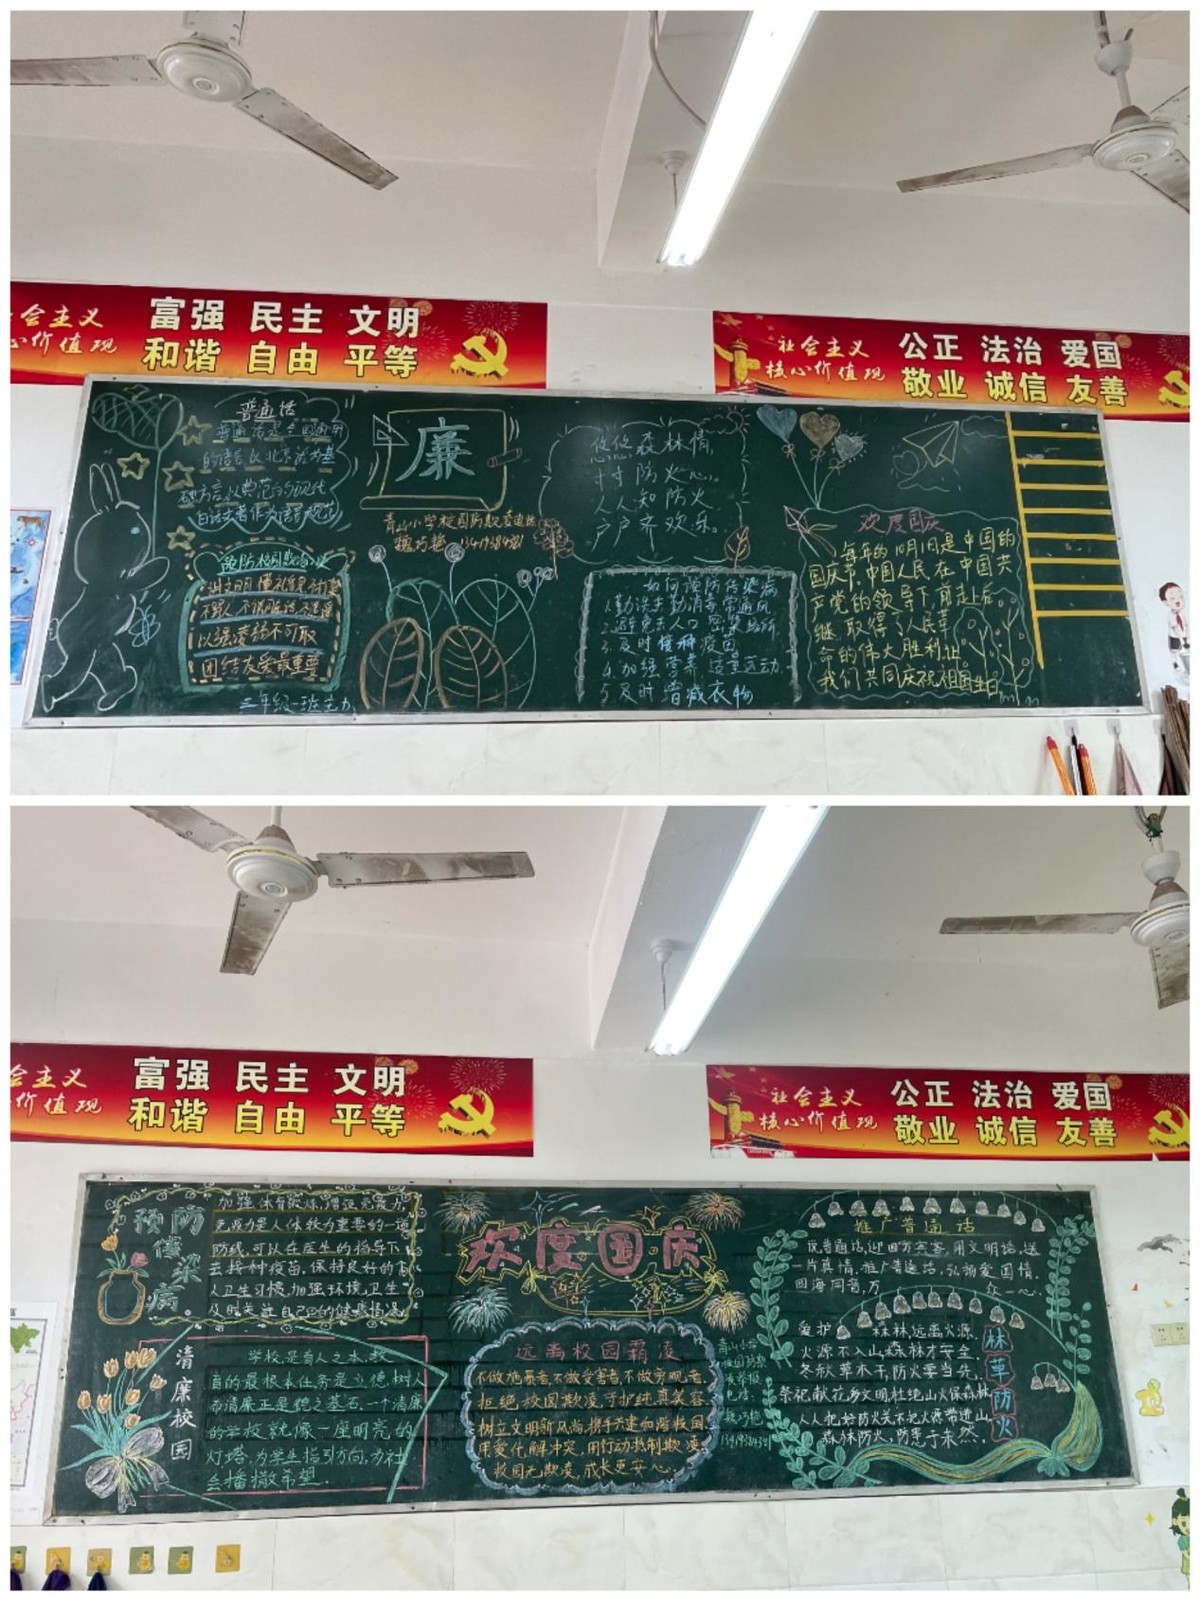 会主义
价值观
富强 民主 文明
和谐 自由 平等
社会主义
核心价值观
公正 法治 爱国
敬业 诚信 友善
普通话
普通话是全国通用
的语言以北京话为基
础方言以典范的现代
白话文著作为语言规范
预防校园欺凌
讲文明懂礼貌
以强凌弱不可取
团结友爱最重要
三年级一班
廉
青山小学校园防欺凌电话
悠悠森林情,
寸寸防火心。
人人知防火,
户户齐欢乐。
如何预防传染病
1.勤洗手勤消毒常通风
2.避免去人口密集场所
3.及时接种疫苗
4.加强营养适量运动
5.及时增减衣物
欢度国庆
每年的10月1日是中国的
国庆节,中国人民在中国共
产党的领导下,前赴后
继,取得了人民革
命的伟大胜利,让
我们共同庆祝祖国生日
会主义
价值观
富强 民主 文明
和谐 自由 平等
社会主义
核心价值观
公正 法治 爱国
敬业 诚信 友善
预防
传染
病
加强体育锻炼,增强免疫力,
免疫力是人体较为重要的一道
防线,可以在医生的指导下
去接种疫苗,保持良好的个
人卫生习惯,加强环境卫生
及时关注自己的健康情况
清廉校园
学校是育人之本,教
育的最根本任务是立德树人
而清廉正是德之基石,一个清廉
的学校就像一座明亮的
灯塔,为学生指引方向,为社
会播撒希望.
欢度国庆
远离校园霸凌
不做施暴者,不做受害者,不做旁观者.
拒绝校园欺凌,守护纯真笑容
树立文明新风尚,携手共建和谐校园
用爱化解冲突,用行动抵制欺凌
校园无欺凌,成长更安心.
青山小学
校园防欺
凌举报
电话:
推广普通话
说普通话,迎四方宾客,用文明语,送
一片真情,推广普通话,弘扬爱国情,
四海同音,万众一心.
林草防火
爱护森林,远离火源.
火源不入山,森林才安全.
冬秋草木干,防火要当先.
祭祀献花乡文明,杜绝山火保森林
人人把好防火关,不把火源带进山
森林防火,防患于未然.